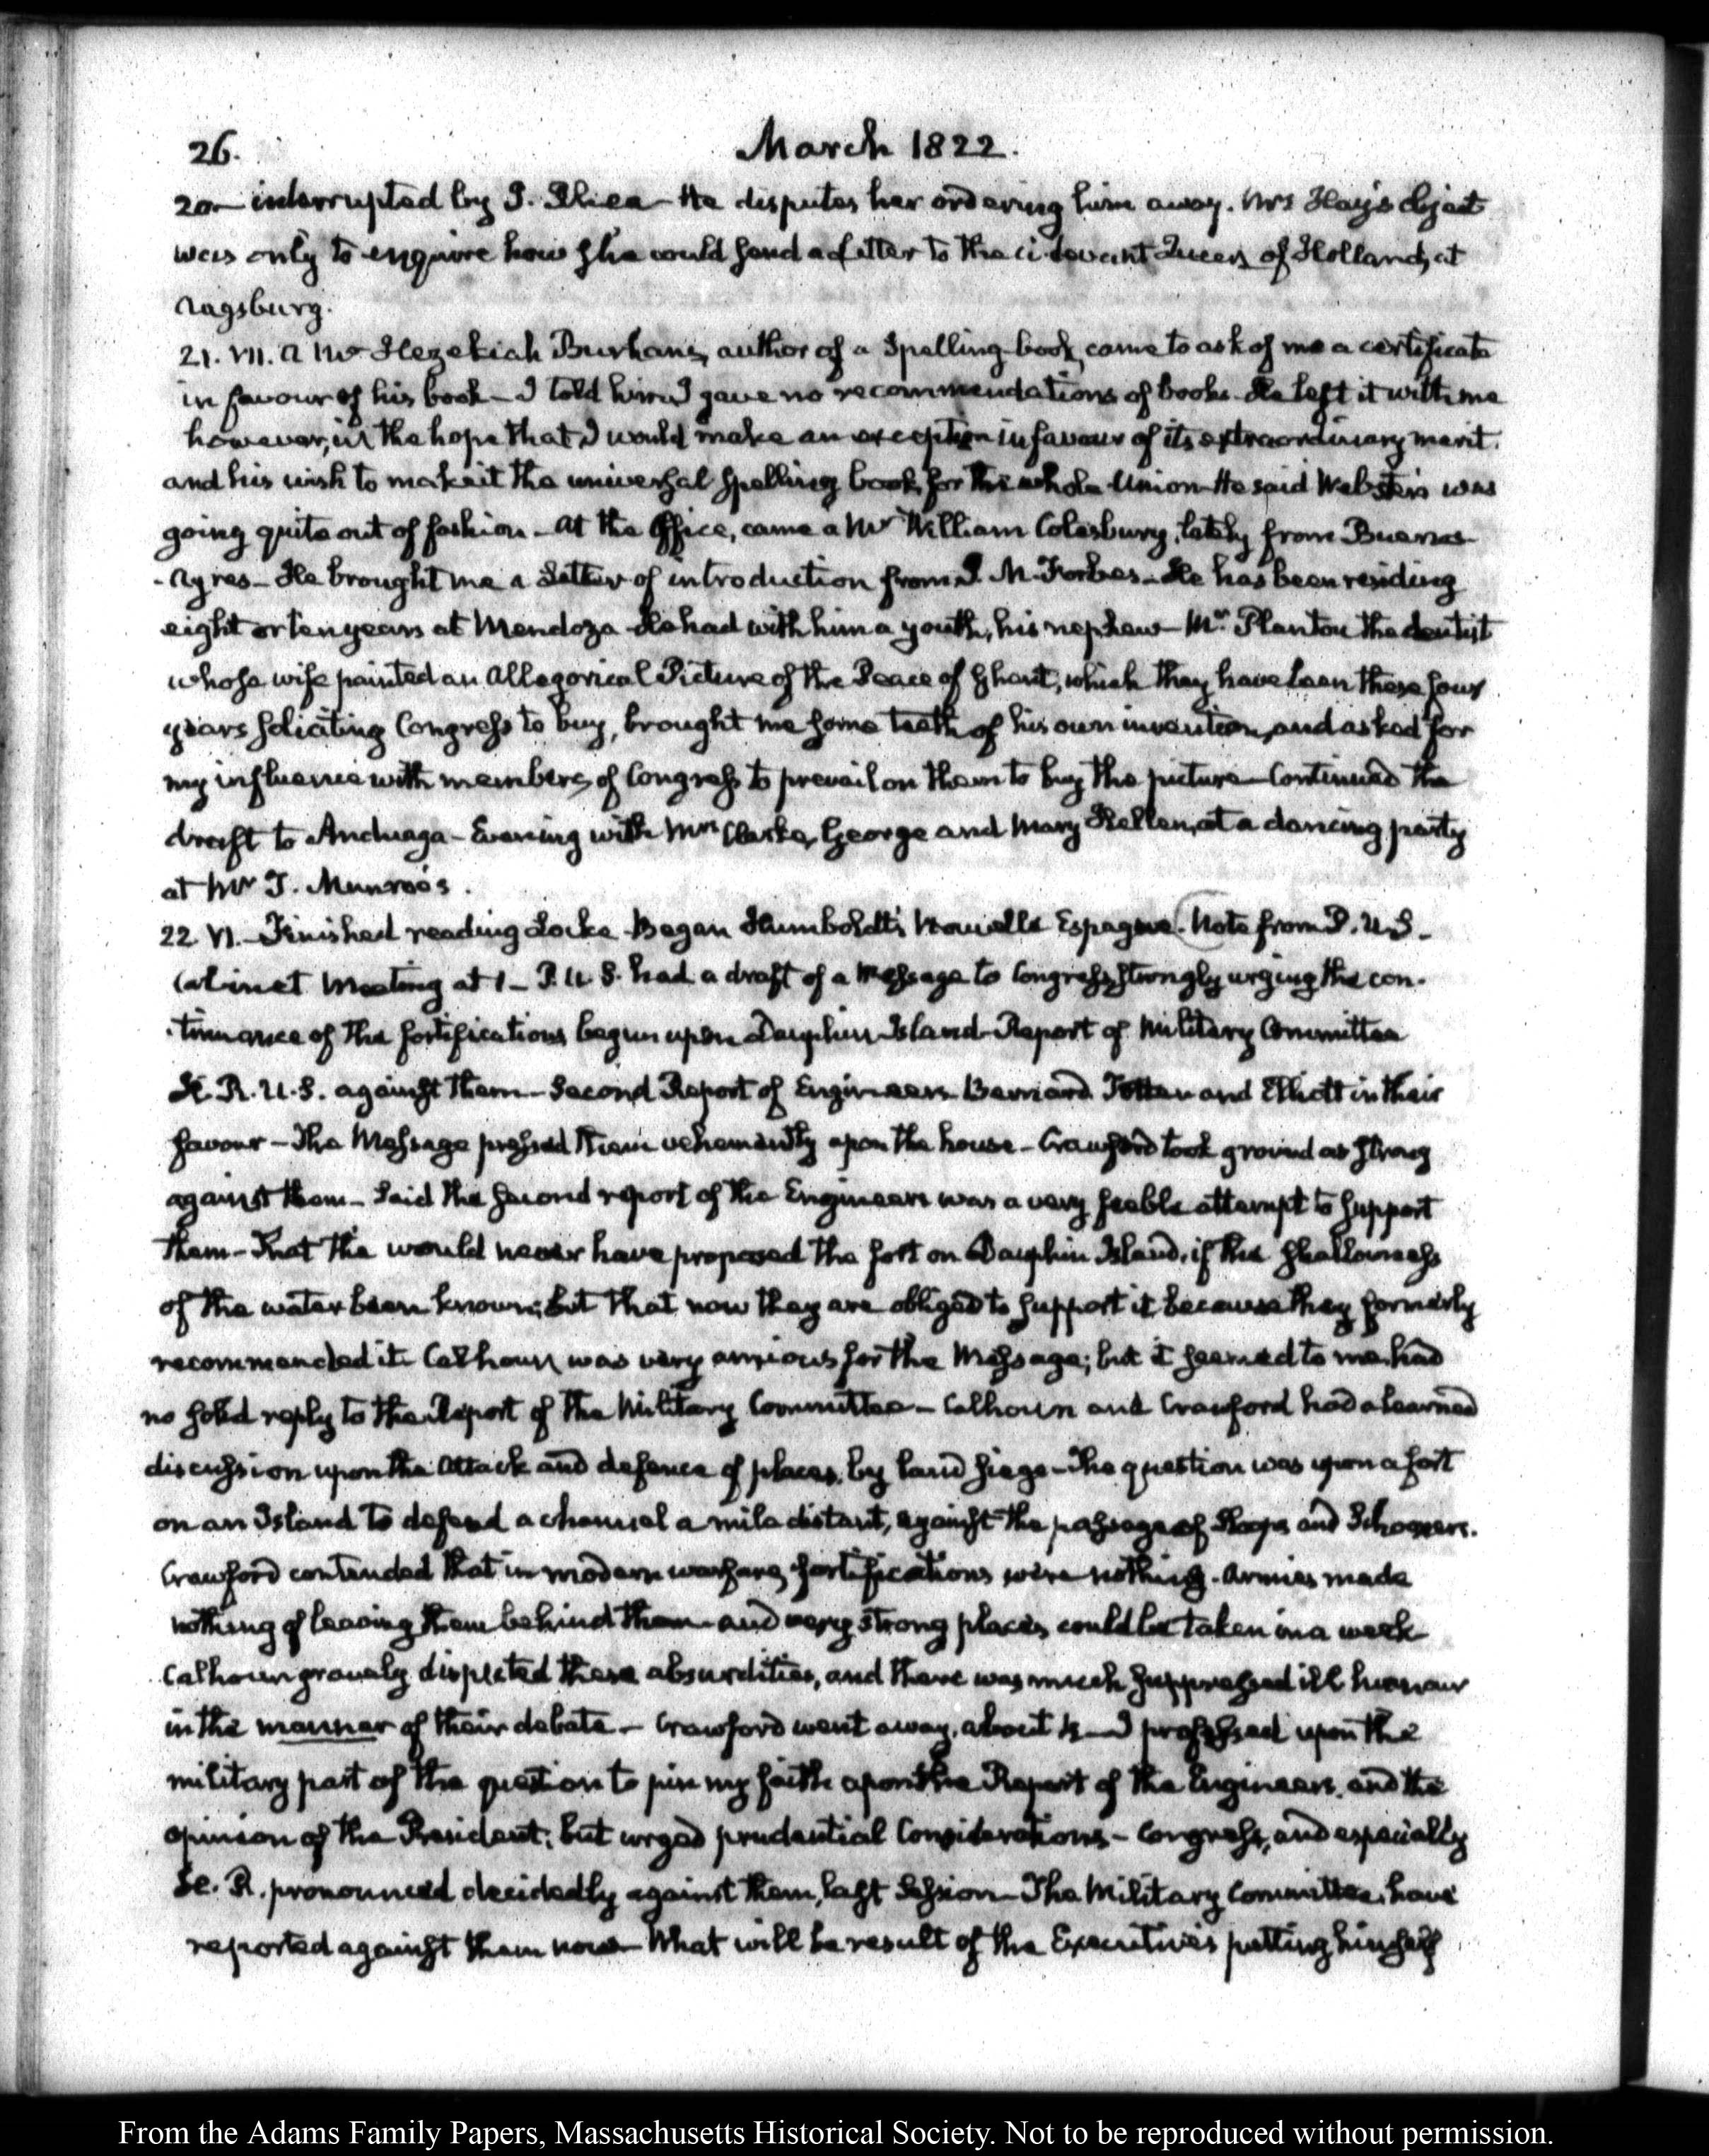 26. March 1822.
20 — interrupted by J. Rhea — He disputes her ordering him away. Mrs Hay's object
was only to enquire how she could send a Letter to the ci-devant Queen of Holland, at
Augsburg.
21. VII. A Mr Hezekiah Burhans, author of a Spelling-book, came to ask of me a certificate
in favour of his book — I told him I gave no recommendations of books. He left it with me
however, in the hope that I would make an exception in favour of its extraordinary merit.
and his wish to make it the universal Spelling book for the whole Union. He said Webster's was
going quite out of fashion — At the Office, came a Mr William Colesbury, lately from Buenos-
-Ayres — He brought me a Letter of introduction from J. M. Forbes — He has been residing
eight or ten years at Mendoza. He had with him a youth, his nephew — Mr. Plantou the dentist
whose wife painted an Allegorical Picture of the Peace of Ghent, which they have been these four
years soliciting Congress to buy, brought me some teeth of his own invention, and asked for
my influence with members of Congress to prevail on them to buy the picture — Continued the
draft to Anduaga — Evening with Mrs Clarke, George and Mary Hellen, at a dancing party
at Mr T. Munroe's.
22. VI. — Finished reading Locke. Began Humboldt's Nouvelle Espagne. Note from P. U. S. —
Cabinet Meeting at 1 — P. U. S. had a draft of a Message to Congress, strongly urging the con-
-tinuance of the fortifications begun upon Dauphin Island — Report of Military Committee
H. R. U. S. against them — Second Report of Engineers Bernard Totten and Elliott in their
favour — The Message pressed them vehemently upon the house — Crawford took ground as strong
against them — Said the second report of the Engineers was a very feeble attempt to support
them — That the would never have proposed the fort on Dauphin Island, if the shallowness
of the water been known; but that now they are obliged to support it because they formerly
recommended it. Calhoun was very anxious for the Message; but it seemed to me, had
no solid reply to the Report of the Military Committee — Calhoun and Crawford had a learned
discussion upon the attack and defence of places, by land siege — The question was upon a fort
on an Island to defend a channel a mile distant, against the passage of Sloops and Schooners.
Crawford contended that in modern warfare, fortifications were nothing. Armies made
nothing of leaving them behind them — and very strong places could be taken in a week
Calhoun gravely disputed these absurdities, and there was much suppressed ill humour
in the manner of their debate — Crawford went away, about 4 — I professed upon the
military part of the question to pin my faith upon the Report of the Engineers, and the
opinion of the President; but urged prudential Considerations — Congress, and especially
H. R. pronounced decidedly against them, last Session — The Military Committee, have
reported against them now — What will be result of the Executive's putting himself
From the Adams Family Papers, Massachusetts Historical Society. Not to be reproduced without permission.